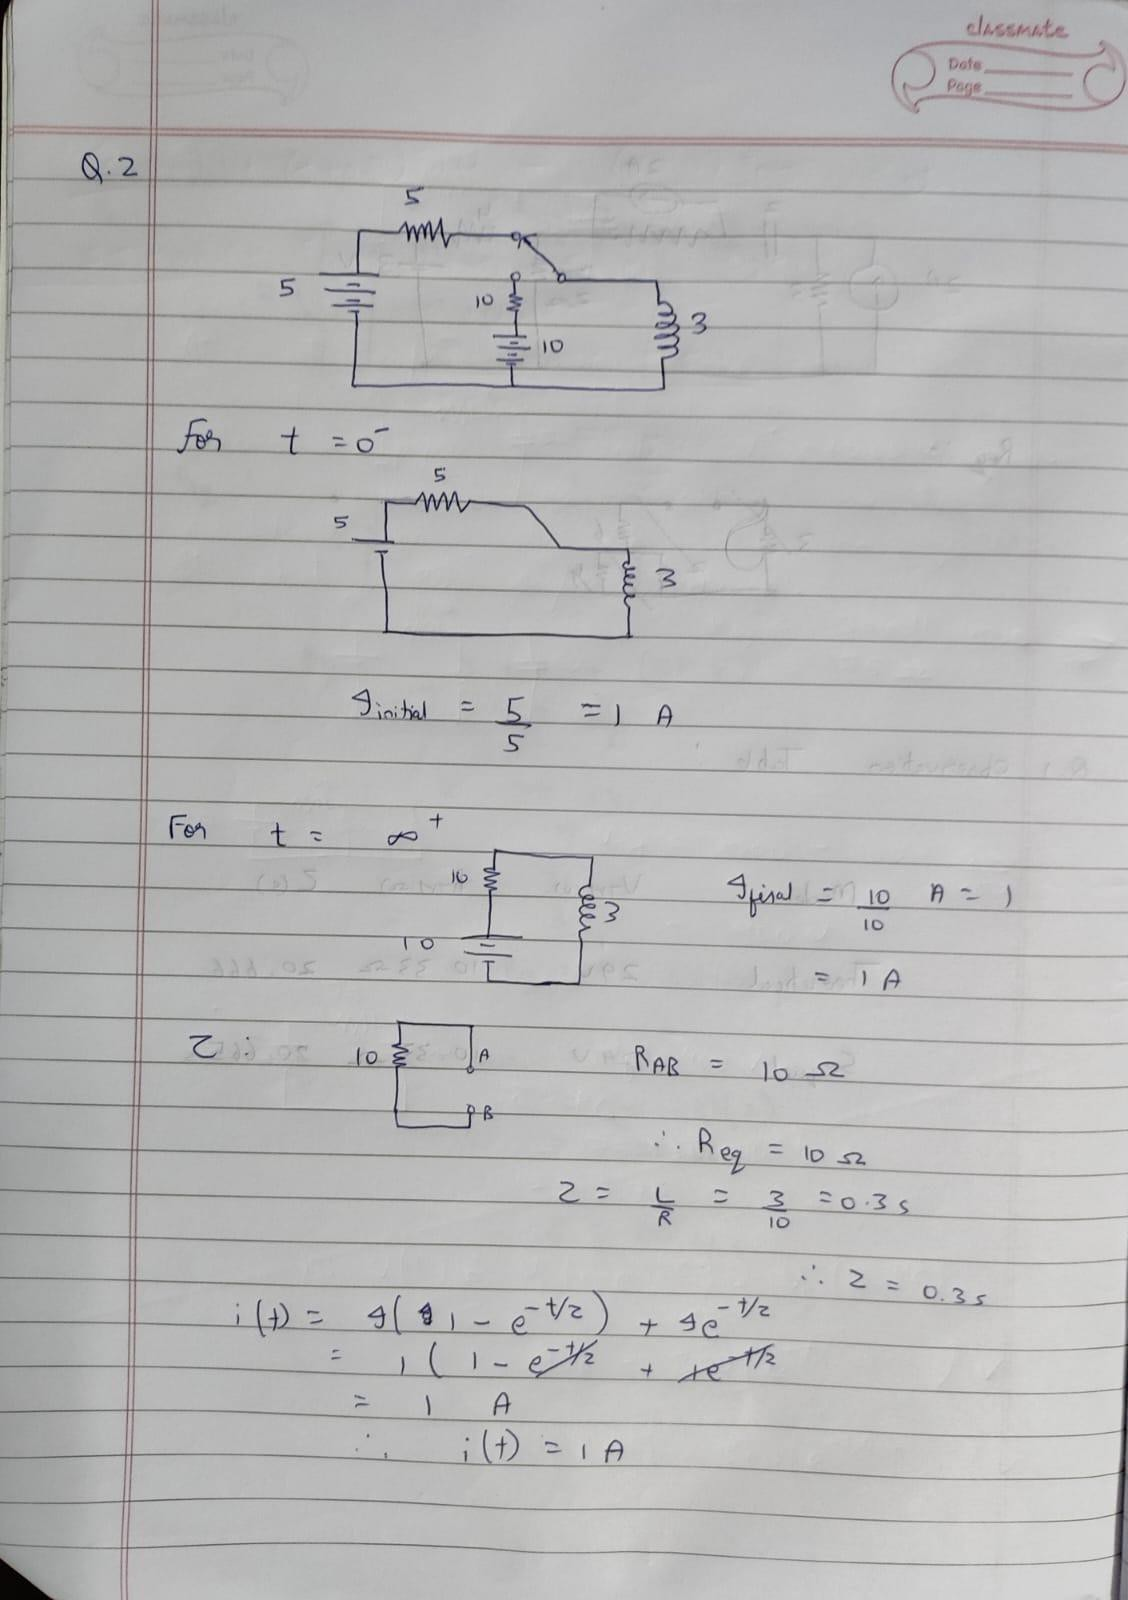 classmate
Date
Page
Q.2
5
5
10
10
3
For t = 0⁻
5
5
3
I initial = 5/5 = 1 A
For t = ∞⁺
10
10
3
I final = 10/10 A = 1
= 1 A
τ :
10
A
B
R_AB = 10 Ω
∴ R_eq = 10 Ω
τ = L/R = 3/10 = 0.3 s
∴ τ = 0.3 s
i(t) = I( 1 - e^(-t/τ) ) + I e^(-t/τ)
= 1 ( 1 - e^(-t/τ) + 1e^(-t/τ)
= 1 A
∴ i(t) = 1 A